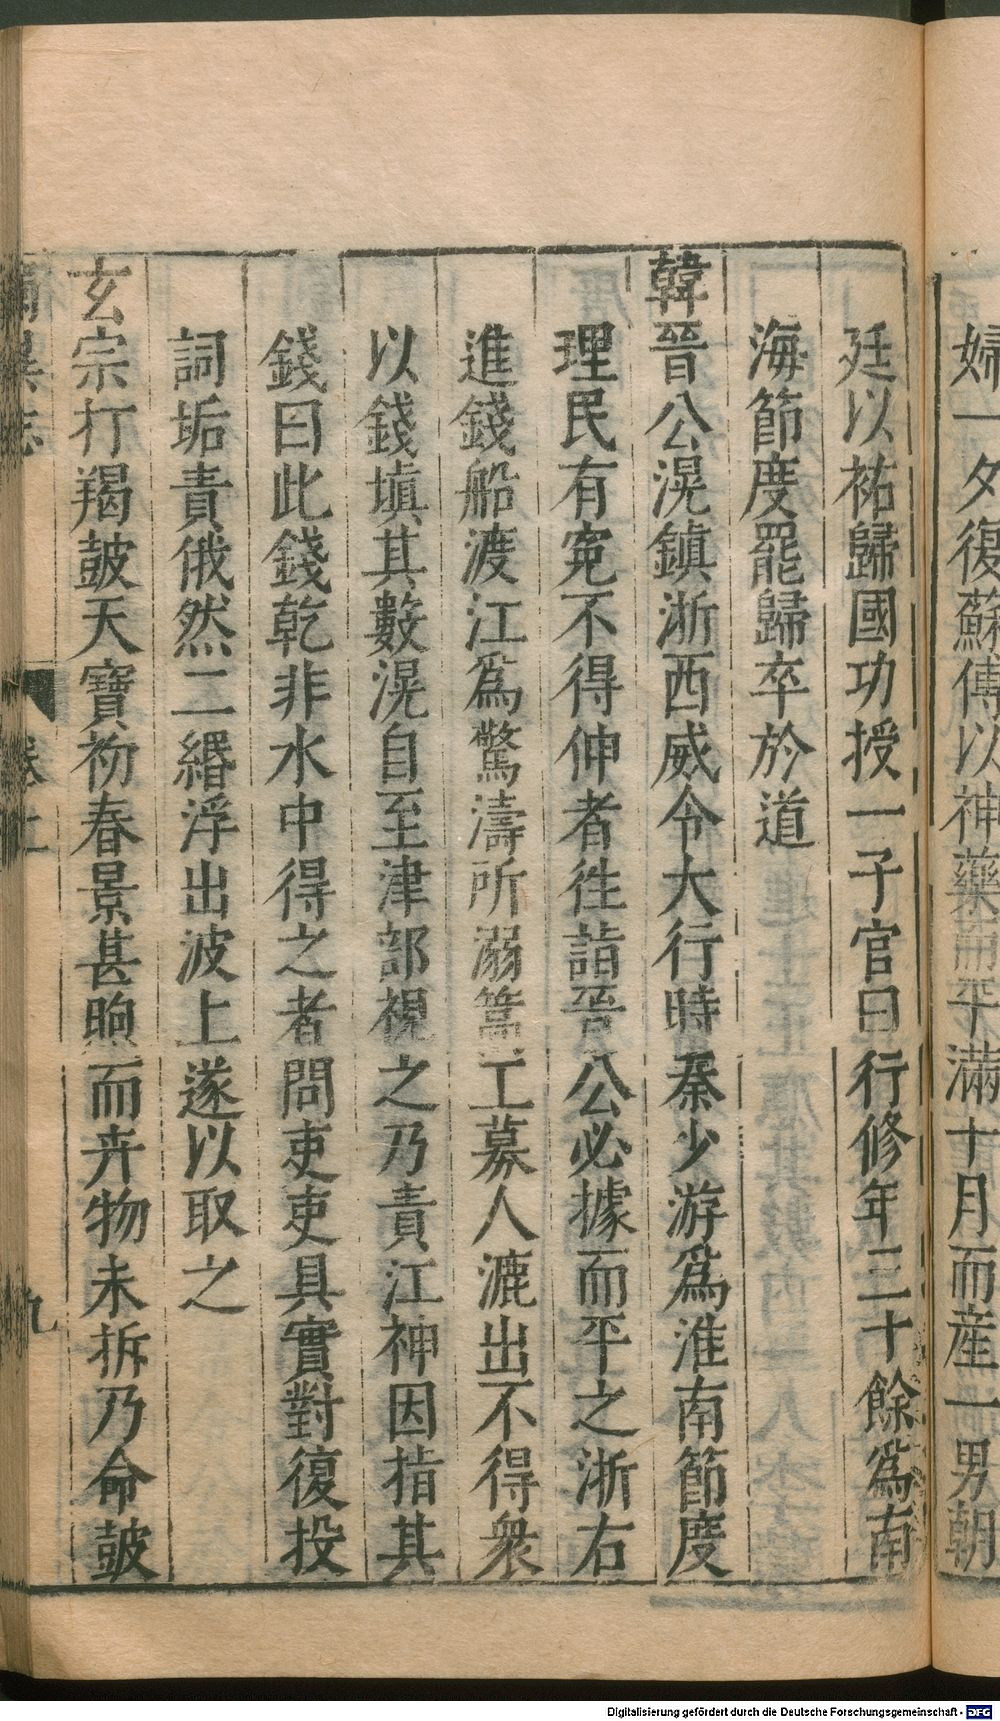 婦一夕復蘇傅以神藥而平滿十月而產一男朝
廷以祐歸國功授一子官曰行修年三十餘爲南
海節度罷歸卒於道
韓晉公滉鎮浙西威令大行時秦少游爲淮南節度
理民有寃不得伸者徃詣晉公必據而平之浙右
進錢船渡江爲驚濤所溺篙工募人漉出不得衆
以錢塡其數滉自至津部視之乃責江神因指其
錢曰此錢乾非水中得之者問吏吏具實對復投
詞垢責俄然二緡浮出波上遂以取之
玄宗打羯鼓天寶初春景甚煦而卉物未拆乃命鼓
卷上
九
Digitalisierung gefördert durch die Deutsche Forschungsgemeinschaft - DFG